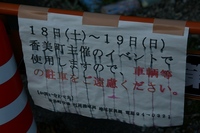 18日(土)~19日(日)
香美町主催のイベントで
使用しますので、車輌等
の駐車をご遠慮ください。